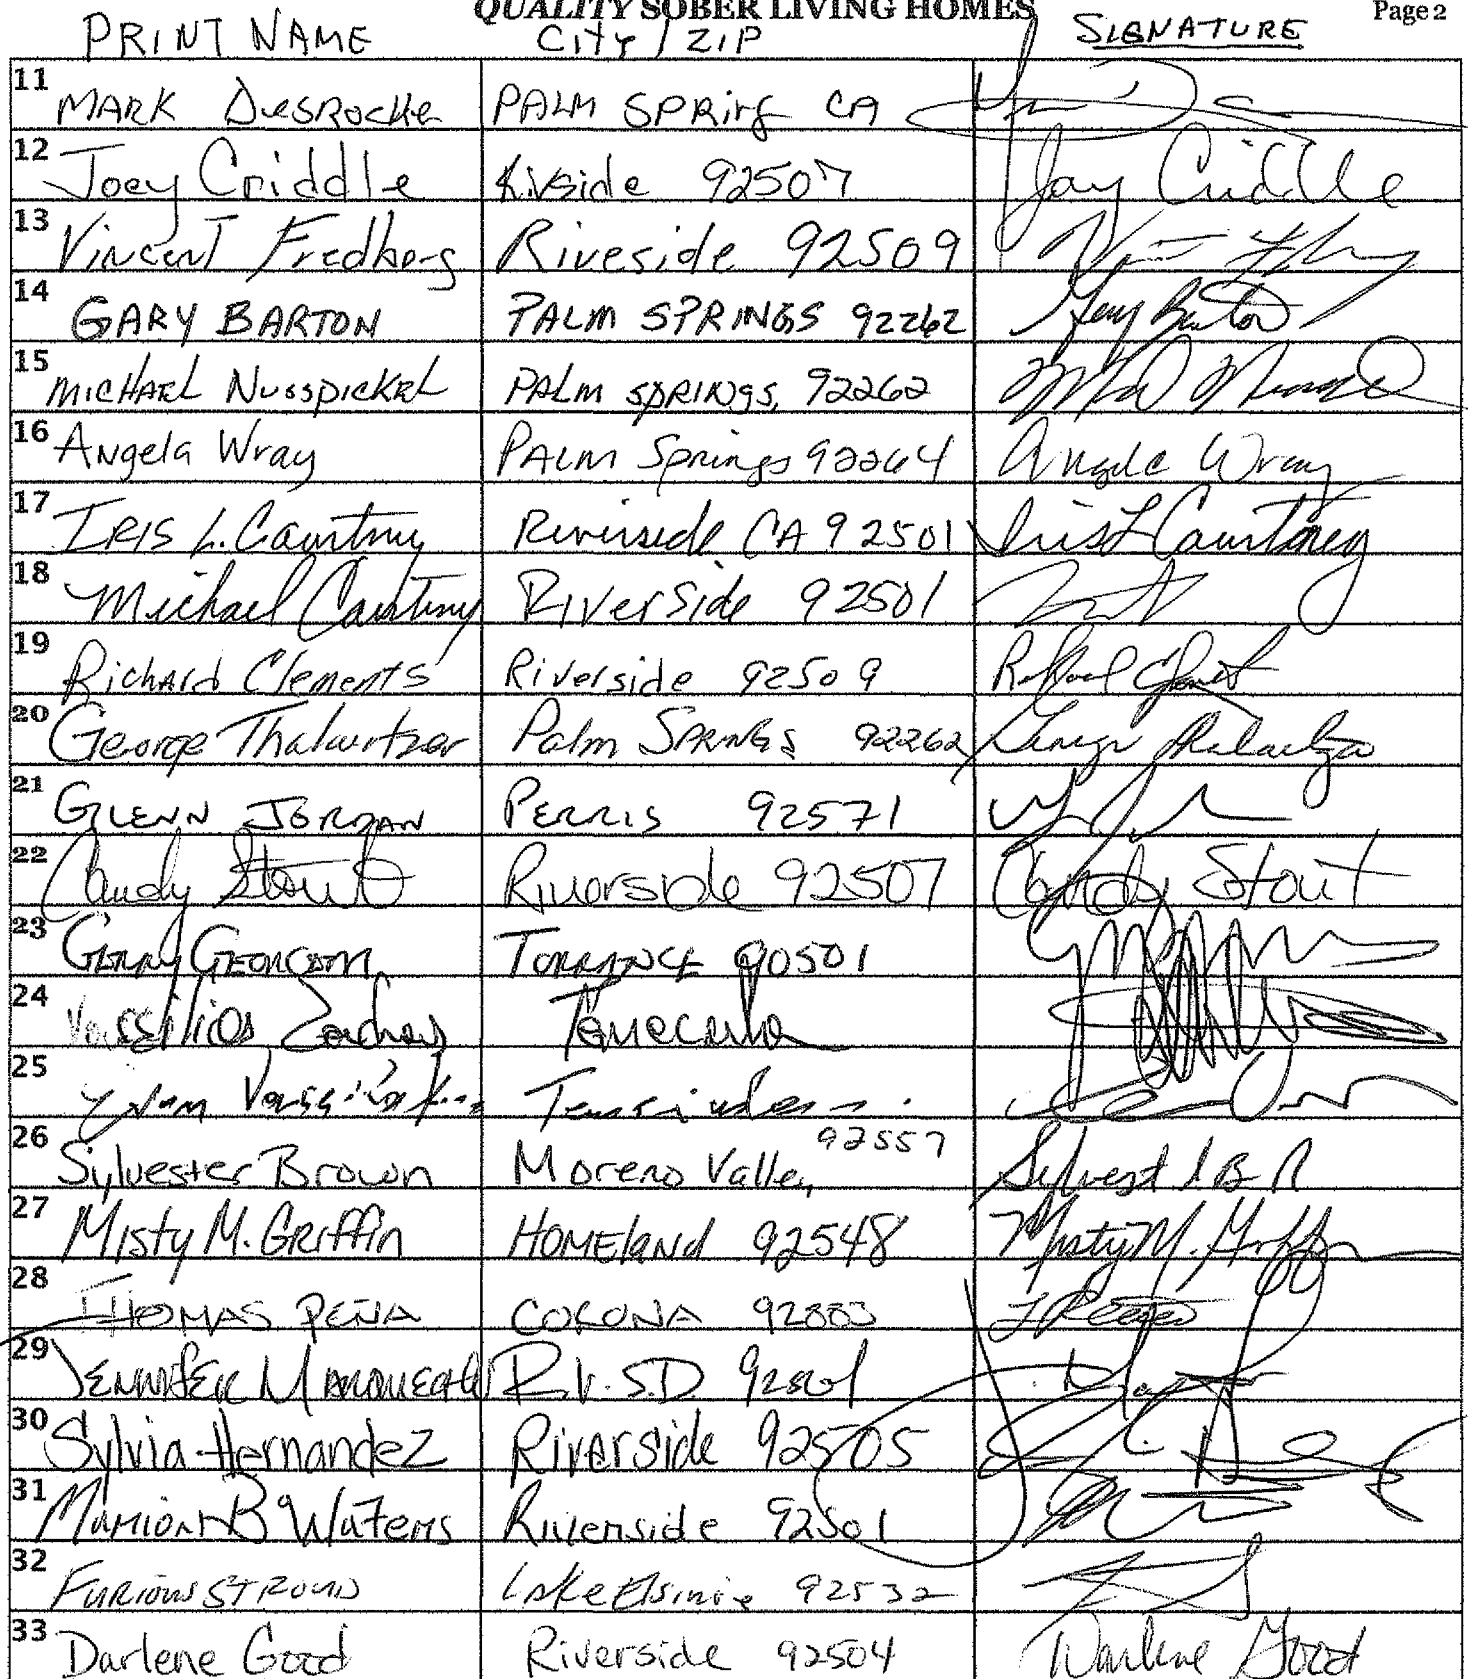 QUALITY SOBER LIVING HOMES Page 2
PRINT NAME CITY / ZIP SIGNATURE
11 MARK DESROCHE PALM SPRing CA
12 Joey Criddle Rivside 92507 Joey Criddle
13 Vincent Fredborg Riveside 92509
14 GARY BARTON PALM SPRINGS 92262 Gary Barton
15 MICHAEL NUSSPICKEL PALM SPRINGS, 92262
16 Angela Wray PALM Springs 92264 Angela Wray
17 IRIS L. Courtney Riverside CA 92501 Iris L Courtney
18 Michael Courtney RiverSide 92501
19 Richard Clements Riverside 92509
20 George Palm SPRINGS 92262 George
21 GLENN JORDAN PERRIS 92571
22 Candy Stout Riverside 92507 Candy Stout
23 TORRANCE 90501
24 Vassilios Temecula
25
26 Sylvester Brown Moreno Valley 92557
27 Misty M. Griffin HOMEland 92548 Misty M. Griffin
28 THOMAS PEÑA CORONA 92883
29 JENNIFER RIV. S.D
30 Sylvia Hernandez Riverside 92505
31 Marion B Waters Riverside 92501
32 FURIOUS STROUD Lake Elsinore 92532
33 Darlene Good Riverside 92504 Darlene Good